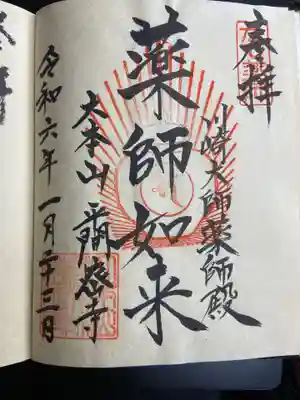 奉拝
川崎大師薬師殿
薬師如来
大本山 平間寺
令和六年一月二十三日